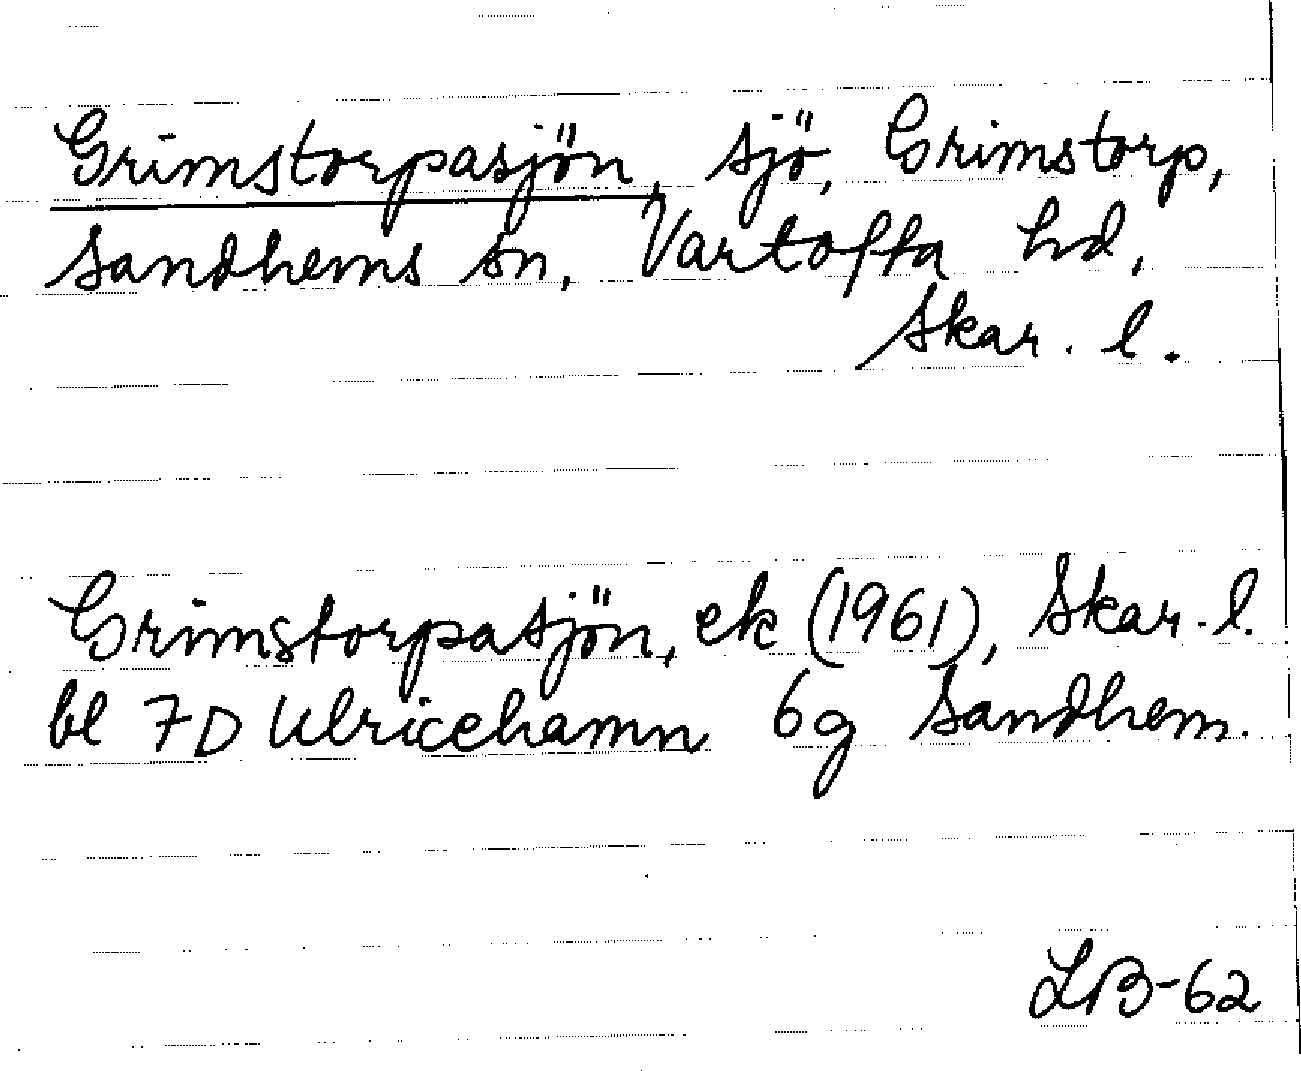 Grimstorpasjön, sjö, Grimstorp,
Sandhems sn, Vartofta hd,
Skar. l.
Grimstorpasjön, ek (1961), Skar. l.
bl 7D Ulricehamn 6g Sandhem.
LB-62